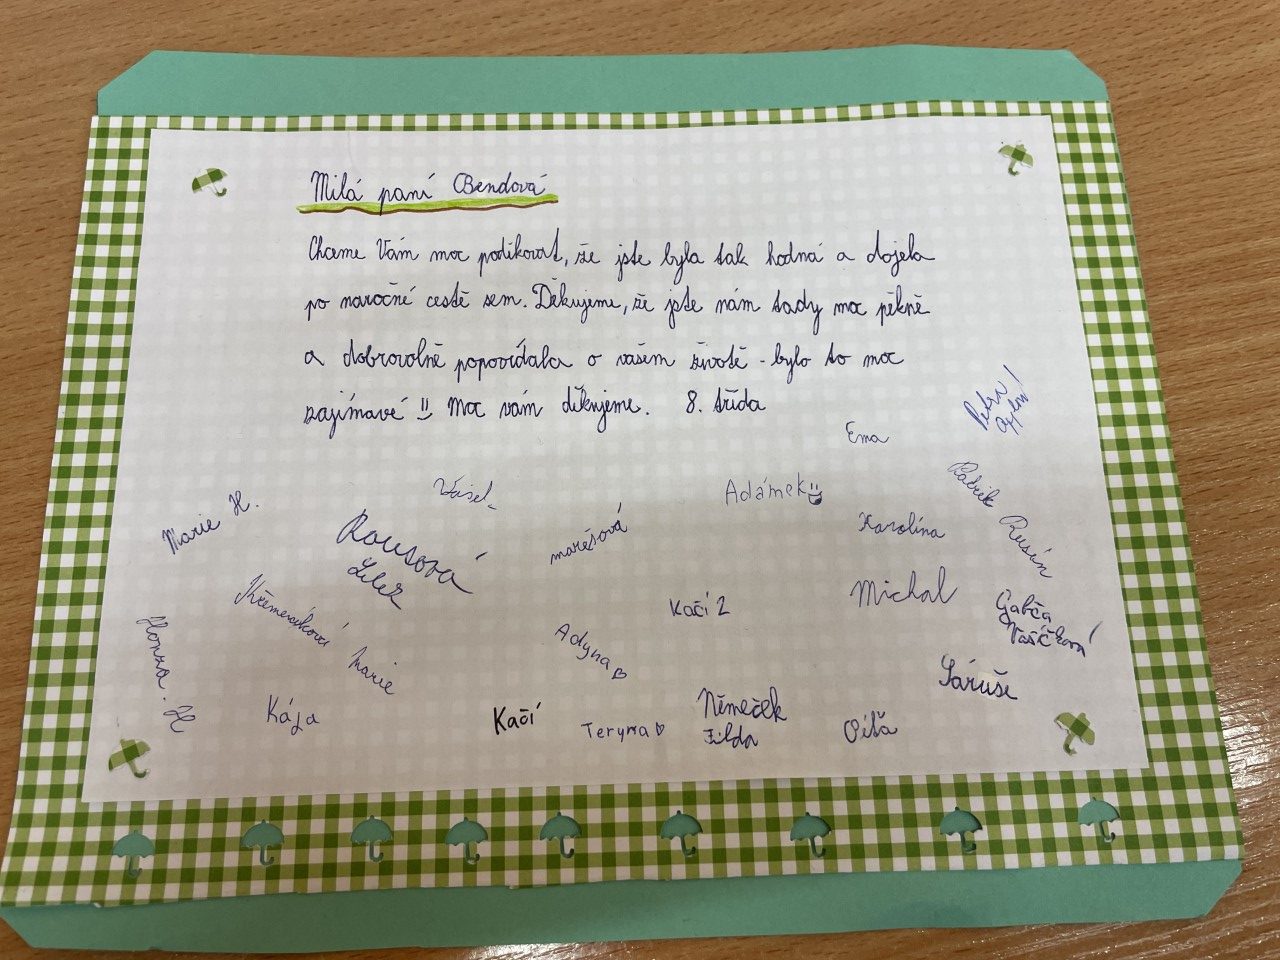 Milá paní Bendová
Chceme Vám moc poděkovat, že jste byla tak hodná a dojela
po naročné cestě sem. Děkujeme, že jste nám tady moc pěkně
a dobrovolně popovídala o vašem životě - bylo to moc
zajímavé Moc vám děkujeme. 8. třída
Ema
Petra
Adámek
Patrik
Rusín
Marie H.
Karolína
Rousová
marešová
Michal
Kačí 2
Gabča
Vašíčková
Marie
Adyna
Honza. H
Sáruše
Kája
Kačí
Teryna
Němeček
Filda
Píťa